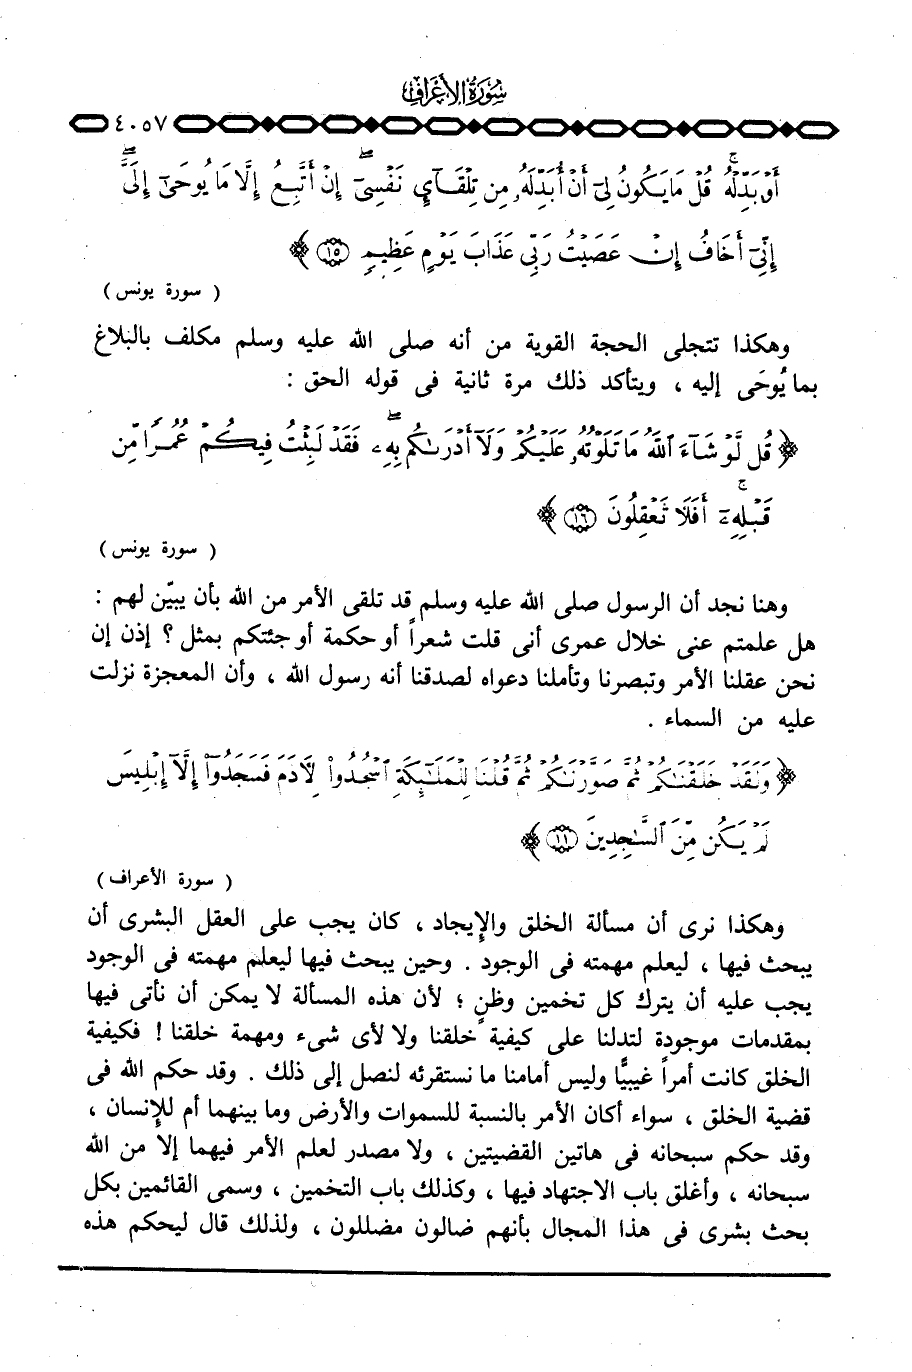 سُورَةُ الأَعْرَافِ
٤٠٥٧
أَوْ بَدِّلْهُ قُلْ مَا يَكُونُ لِىٓ أَنْ أُبَدِّلَهُۥ مِن تِلْقَآئِ نَفْسِىٓ إِنْ أَتَّبِعُ إِلَّا مَا يُوحَىٰٓ إِلَىَّ
إِنِّىٓ أَخَافُ إِنْ عَصَيْتُ رَبِّى عَذَابَ يَوْمٍ عَظِيمٍ ﴿١٥﴾ ﴾
( سورة يونس )
وهكذا تتجلى الحجة القوية من أنه صلى الله عليه وسلم مكلف بالبلاغ
بما يُوحَى إليه ، ويتأكد ذلك مرة ثانية فى قوله الحق :
﴿ قُل لَّوْ شَآءَ ٱللَّهُ مَا تَلَوْتُهُۥ عَلَيْكُمْ وَلَآ أَدْرَىٰكُم بِهِۦ فَقَدْ لَبِثْتُ فِيكُمْ عُمُرًا مِّن
قَبْلِهِۦٓ أَفَلَا تَعْقِلُونَ ﴿١٦﴾ ﴾
( سورة يونس )
وهنا نجد أن الرسول صلى الله عليه وسلم قد تلقى الأمر من الله بأن يبيّن لهم :
هل علمتم عنى خلال عمرى أنى قلت شعراً أو حكمة أو جئتكم بمثل ؟ إذن إن
نحن عقلنا الأمر وتبصرنا وتأملنا دعواه لصدقنا أنه رسول الله ، وأن المعجزة نزلت
عليه من السماء .
﴿ وَلَقَدْ خَلَقْنَٰكُمْ ثُمَّ صَوَّرْنَٰكُمْ ثُمَّ قُلْنَا لِلْمَلَٰٓئِكَةِ ٱسْجُدُوا۟ لِأَدَمَ فَسَجَدُوٓا۟ إِلَّآ إِبْلِيسَ
لَمْ يَكُن مِّنَ ٱلسَّٰجِدِينَ ﴿١١﴾ ﴾
( سورة الأعراف )
وهكذا نرى أن مسألة الخلق والإيجاد ، كان يجب على العقل البشرى أن
يبحث فيها ، ليعلم مهمته فى الوجود . وحين يبحث فيها ليعلم مهمته فى الوجود
يجب عليه أن يترك كل تخمين وظنٍ ؛ لأن هذه المسألة لا يمكن أن نأتى فيها
بمقدمات موجودة لتدلنا على كيفية خلقنا ولا لأى شىء ومهمة خلقنا ! فكيفية
الخلق كانت أمراً غيبيًّا وليس أمامنا ما نستقرئه لنصل إلى ذلك . وقد حكم الله فى
قضية الخلق ، سواء أكان الأمر بالنسبة للسموات والأرض وما بينهما أم للإنسان ،
وقد حكم سبحانه فى هاتين القضيتين ، ولا مصدر لعلم الأمر فيهما إلا من الله
سبحانه ، وأغلق باب الاجتهاد فيها ، وكذلك باب التخمين ، وسمى القائمين بكل
بحث بشرى فى هذا المجال بأنهم ضالون مضللون ، ولذلك قال ليحكم هذه